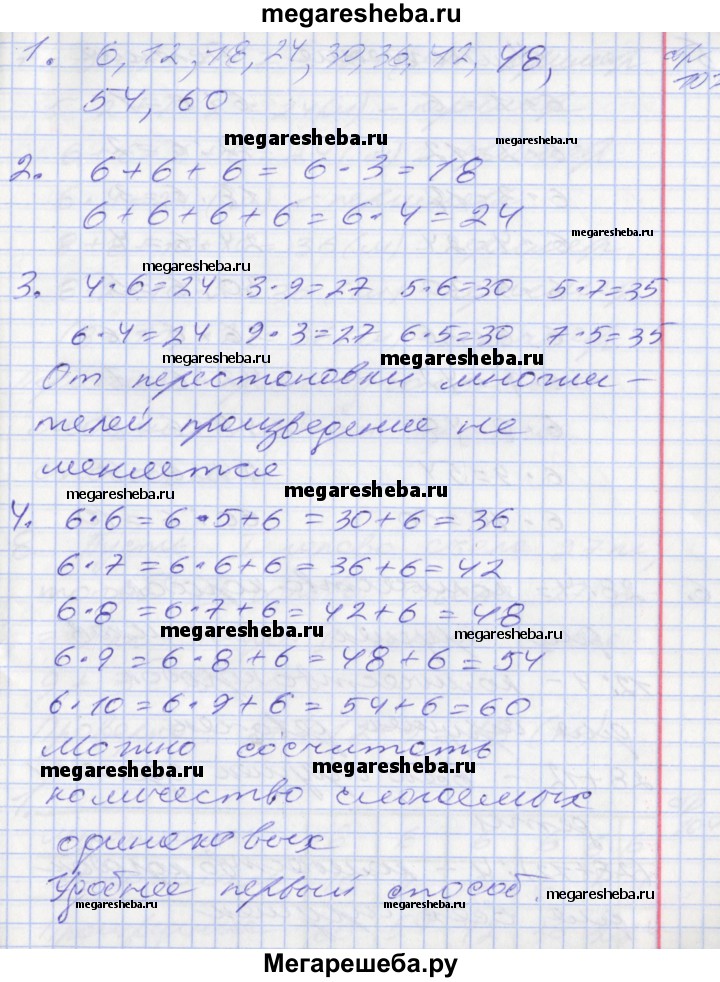 megaresheba.ru
1. 6, 12, 18, 24, 30, 36, 42, 48,
54, 60
megaresheba.ru megaresheba.ru
2. 6 + 6 + 6 = 6 · 3 = 18
6 + 6 + 6 + 6 = 6 · 4 = 24
megaresheba.ru
3. 4·6=24 3·9=27 5·6=30 5·7=35
6·4=24 9·3=27 6·5=30 7·5=35
megaresheba.ru megaresheba.ru megaresheba.ru
От перестановки множи-
телей произведение не
меняется
megaresheba.ru megaresheba.ru megaresheba.ru
4. 6·6 = 6·5+6 = 30+6 = 36
6·7 = 6·6+6 = 36+6 = 42
6·8 = 6·7+6 = 42+6 = 48
megaresheba.ru megaresheba.ru
6·9 = 6·8+6 = 48+6 = 54
6·10 = 6·9+6 = 54+6 = 60
Можно сосчитать
megaresheba.ru megaresheba.ru
количество слогаемых
одинаковых
Удобнее первый способ.
megaresheba.ru megaresheba.ru
Мегарешеба.ру